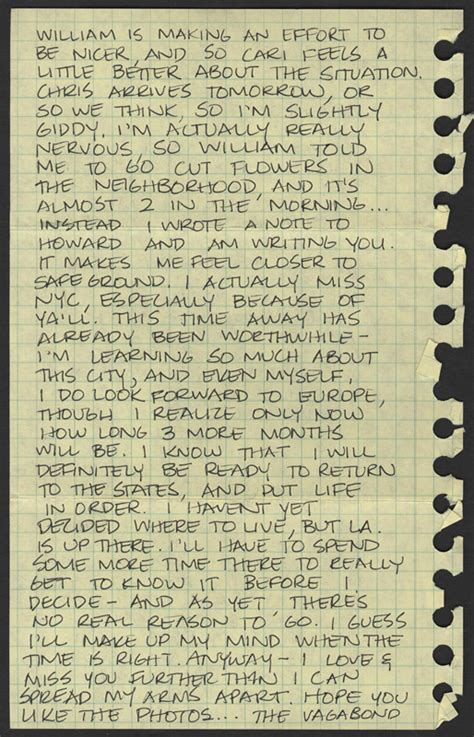 WILLIAM IS MAKING AN EFFORT TO
BE NICER, AND SO CARI FEELS A
LITTLE BETTER ABOUT THE SITUATION.
CHRIS ARRIVES TOMORROW, OR
SO WE THINK, SO I'M SLIGHTLY
GIDDY. I'M ACTUALLY REALLY
NERVOUS, SO WILLIAM TOLD
ME TO GO CUT FLOWERS IN
THE NEIGHBORHOOD, AND IT'S
ALMOST 2 IN THE MORNING...
INSTEAD I WROTE A NOTE TO
HOWARD AND AM WRITING YOU.
IT MAKES ME FEEL CLOSER TO
SAFE GROUND. I ACTUALLY MISS
NYC, ESPECIALLY BECAUSE OF
YA'LL. THIS TIME AWAY HAS
ALREADY BEEN WORTHWHILE -
I'M LEARNING SO MUCH ABOUT
THIS CITY, AND EVEN MYSELF.
I DO LOOK FORWARD TO EUROPE,
THOUGH I REALIZE ONLY NOW
HOW LONG 3 MORE MONTHS
WILL BE. I KNOW THAT I WILL
DEFINITELY BE READY TO RETURN
TO THE STATES, AND PUT LIFE
IN ORDER. I HAVENT YET
DECIDED WHERE TO LIVE, BUT LA.
IS UP THERE. I'LL HAVE TO SPEND
SOME MORE TIME THERE TO REALLY
GET TO KNOW IT BEFORE I
DECIDE - AND AS YET THERE'S
NO REAL REASON TO GO. I GUESS
I'LL MAKE UP MY MIND WHEN THE
TIME IS RIGHT. ANYWAY - I LOVE &
MISS YOU FURTHER THAN I CAN
SPREAD MY ARMS APART. HOPE YOU
LIKE THE PHOTOS... THE VAGABOND